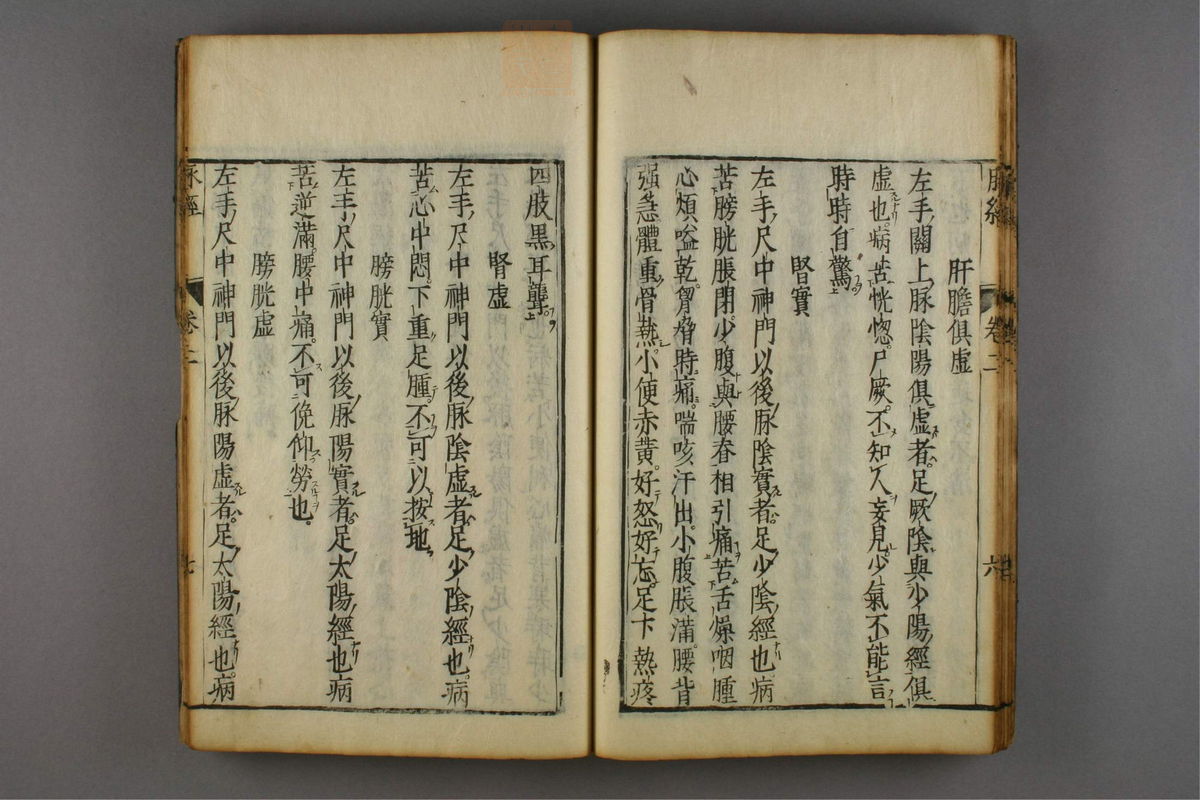 脉經
卷二
六
肝膽俱虛
左手關上脉陰陽俱虛者足厥陰與少陽經俱
虛也病苦恍惚尸厥不知人妄見少氣不能言
時時自驚
腎實
左手尺中神門以後脉陰實者足少陰經也病
苦膀胱脹閉少腹與腰脊相引痛苦舌燥咽腫
心煩嗌乾胷脅時痛喘咳汗出小腹脹滿腰背
强急體重骨熱小便赤黃好怒好忘足下熱疼
四肢黒耳聾
腎虛
左手尺中神門以後脉陰虛者足少陰經也病
苦心中悶下重足腫不可以按地
膀胱實
左手尺中神門以後脉陽實者足太陽經也病
苦逆滿腰中痛不可俛仰勞也
膀胱虛
左手尺中神門以後脉陽虛者足太陽經也病
脉經
卷二
七